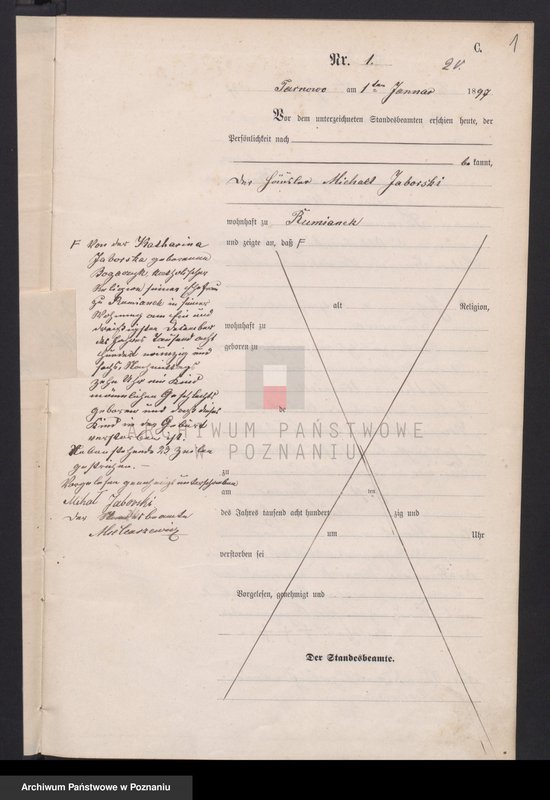 C. 1
Nr. 1.
Tarnowo am 1ten Januar 1897
Vor dem unterzeichneten Standesbeamten erschien heute, der
Persönlichkeit nach
be kannt,
der Häusler Michael Jaborski
wohnhaft zu Rumianek
und zeigte an, daß F
F von der Katharina
Jaborska geborenen
katholischer
Religion, seiner Ehefrau
zu Rumianek in seiner
Wohnung am ein und
dreißigsten Dezember
des Jahres tausend acht
hundert neunzig und
sechs, Nachmittags
zehn Uhr ein Kind
männlichen Geschlechts
geboren und daß dieses
Kind in der Geburt
verstorben ist.
Nebenstehende 23 Zeilen
gestrichen. —
Vorgelesen genehmigt unterschrieben
Michał Jaborski
Der Standesbeamte
alt Religion,
wohnhaft zu
geboren zu
de
zu
am ten
des Jahres tausend acht hundert zig und
um Uhr
verstorben sei
Vorgelesen, genehmigt und
Der Standesbeamte.
ARCHIWUM PAŃSTWOWE
W POZNANIU
Archiwum Państwowe w Poznaniu